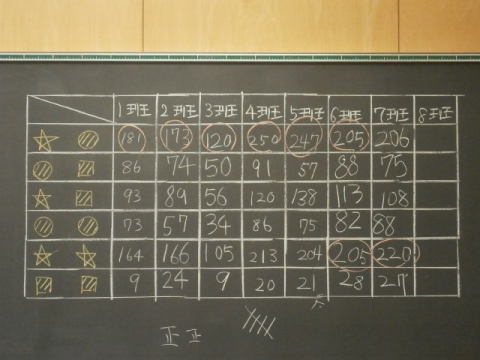 1班 2班 3班 4班 5班 6班 7班 8班
181 173 120 250 247 205 206
86 74 50 91 57 88 75
93 89 56 120 138 113 108
73 57 34 86 75 82 88
164 166 105 213 204 205 220
9 24 9 20 21 28 27
正 正